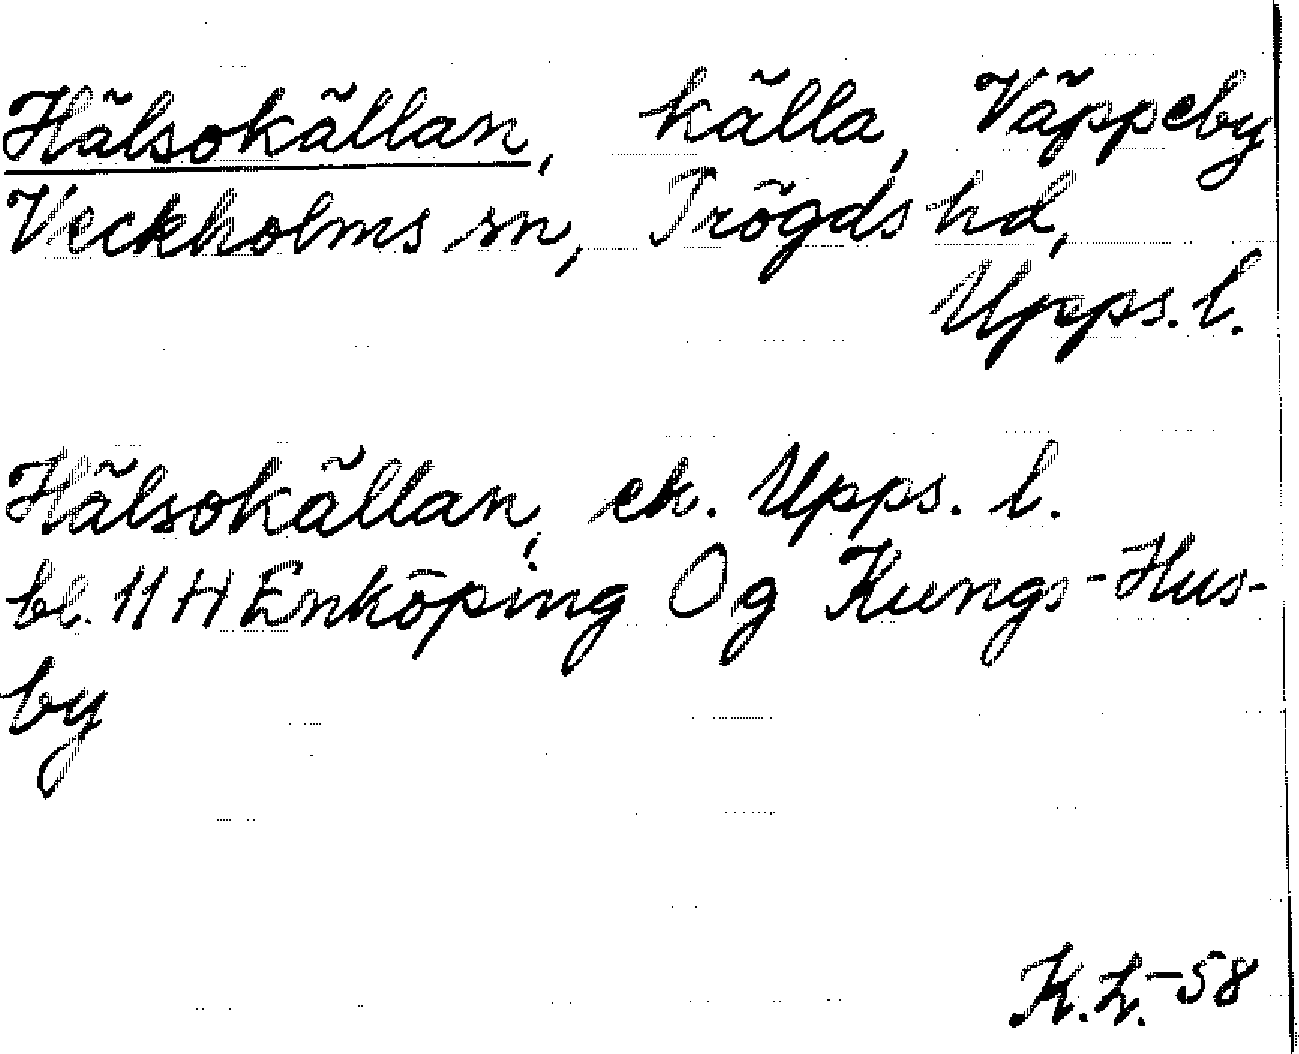 Hälsokällan, källa, Väppeby
Veckholms sn, Trögds hd,
Upps. l.
Hälsokällan, ek. Upps. l.
bl. 11 H Enköping Og Kungs-Hus-
by
K.L.-58